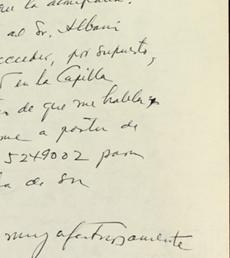 la admiración.
al Sr. Albani
acceder, por supuesto,
en la Capilla
de que me habla,
me a partir de
5249002 para
de su
muy afectuosamente